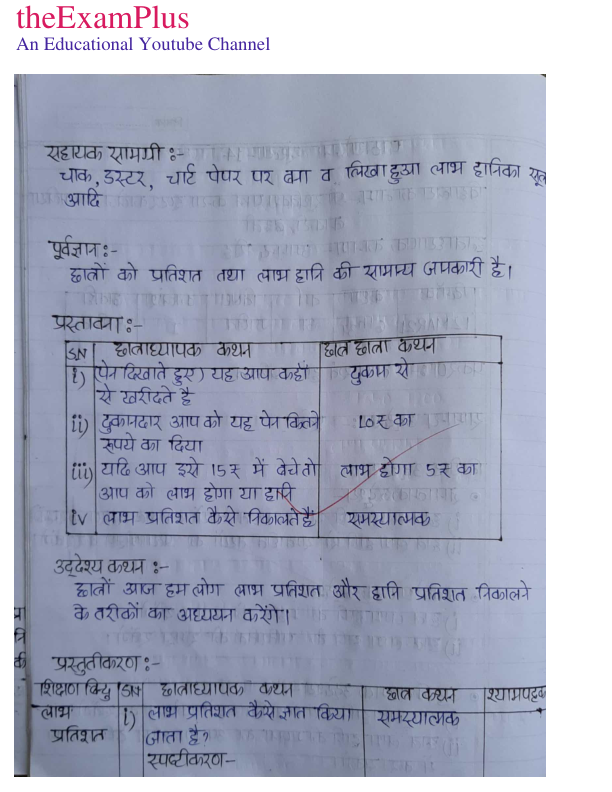 theExamPlus
An Educational Youtube Channel
सहायक सामग्री :-
चाक, डस्टर, चार्ट पेपर पर बना व लिखा हुआ लाभ हानि का सूत्र
आदि
पूर्वज्ञान :-
छात्रों को प्रतिशत तथा लाभ हानि की सामान्य जानकारी है।
प्रस्तावना :-
SN छात्राध्यापक कथन छात्र छात्रा कथन
i) (पेन दिखाते हुए) यह आप कहाँ दुकान से
से खरीदते है
ii) दुकानदार आप को यह पेन कितने 10₹ का
रूपये का दिया
iii) यदि आप इसे 15₹ में बेचे तो लाभ होगा 5₹ का
आप को लाभ होगा या हानि
iv लाभ प्रतिशत कैसे निकालते है समस्यात्मक
उद्देश्य कथन :-
छात्रों आज हम लोग लाभ प्रतिशत और हानि प्रतिशत निकालने
के तरीकों का अध्ययन करेंगे।
प्रस्तुतीकरण :-
शिक्षण बिंदु SN छात्राध्यापक कथन छात्र कथन श्यामपट्ट
लाभ i) लाभ प्रतिशत कैसे ज्ञात किया समस्यात्मक
प्रतिशत जाता है?
स्पष्टीकरण-